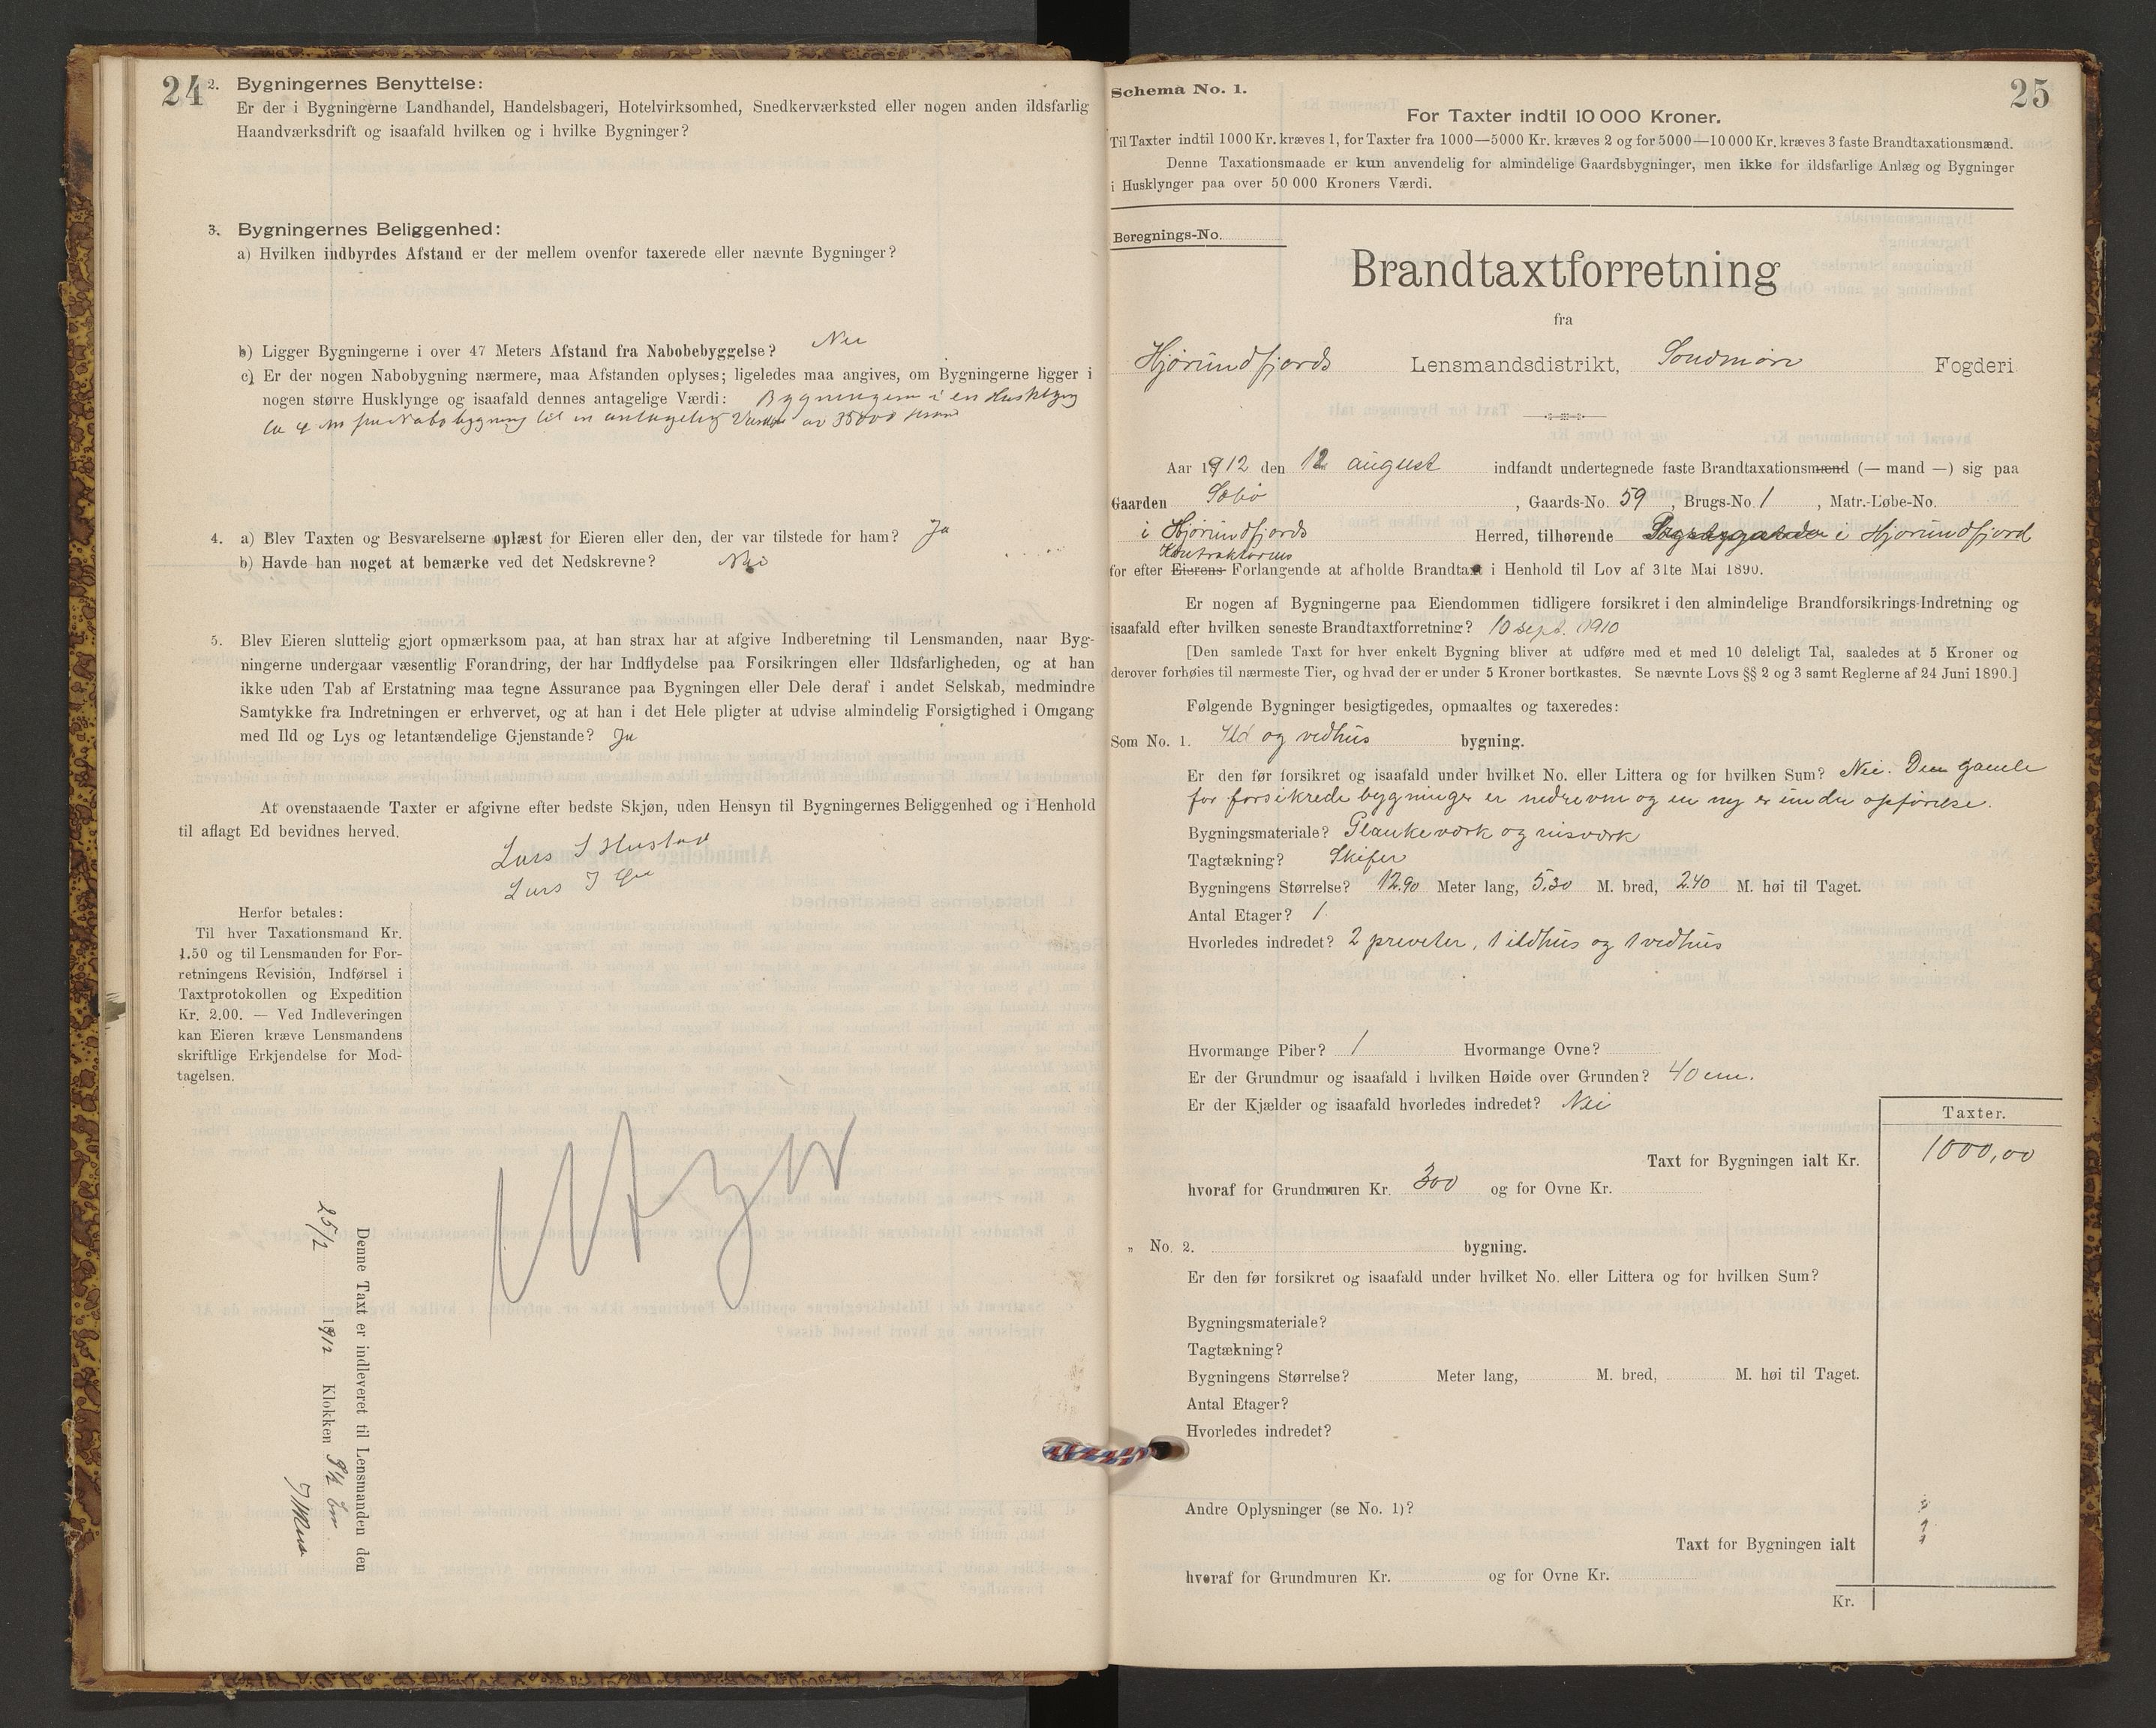 24
2. Bygningernes Benyttelse:
Er der i Bygningerne Landhandel, Handelsbageri, Hotelvirksomhed, Snedkerværksted eller nogen anden ildsfarlig
Haandværksdrift og isaafald hvilken og i hvilke Bygninger?
3. Bygningernes Beliggenhed:
a) Hvilken indbyrdes Afstand er der mellem ovenfor taxerede eller nævnte Bygninger?
b) Ligger Bygningerne i over 47 Meters Afstand fra Nabobebyggelse? Nei
c) Er der nogen Nabobygning nærmere, maa Afstanden oplyses; ligeledes maa angives, om Bygningerne ligger i
nogen større Husklynge og isaafald dennes antagelige Værdi: Bygningerne i en Husklyng
ca 4 m fra Nabobygning til en antagelig Værdi av 35000 kroner
4. a) Blev Taxten og Besvarelserne oplæst for Eieren eller den, der var tilstede for ham? Ja
b) Havde han noget at bemærke ved det Nedskrevne? Nei
5. Blev Eieren sluttelig gjort opmærksom paa, at han strax har at afgive Indberetning til Lensmanden, naar Byg-
ningerne undergaar væsentlig Forandring, der har Indflydelse paa Forsikringen eller Ildsfarligheden, og at han
ikke uden Tab af Erstatning maa tegne Assurance paa Bygningen eller Dele deraf i andet Selskab, medmindre
Samtykke fra Indretningen er erhvervet, og at han i det Hele pligter at udvise almindelig Forsigtighed i Omgang
med Ild og Lys og letantændelige Gjenstande? Ja
At ovenstaaende Taxter er afgivne efter bedste Skjøn, uden Hensyn til Bygningernes Beliggenhed og i Henhold
til aflagt Ed bevidnes herved.
Lars I Hustad
Lars I
Herfor betales:
Til hver Taxationsmand Kr.
1.50 og til Lensmanden for For-
retningens Revision, Indførsel i
Taxtprotokollen og Expedition
Kr. 2.00. — Ved Indleveringen
kan Eieren kræve Lensmandens
skriftlige Erkjendelse for Mod-
tagelsen.
Denne Taxt er indleveret til Lensmanden den
25/2 1912 Klokken 9½
25
Schema No. 1.
For Taxter indtil 10 000 Kroner.
Til Taxter indtil 1000 Kr. kræves 1, for Taxter fra 1000—5000 Kr. kræves 2 og for 5000—10 000 Kr. kræves 3 faste Brandtaxationsmænd.
Denne Taxationsmaade er kun anvendelig for almindelige Gaardsbygninger, men ikke for ildsfarlige Anlæg og Bygninger
i Husklynger paa over 50 000 Kroners Værdi.
Beregnings-No.
Brandtaxtforretning
fra
Hjørundfjords Lensmandsdistrikt, Søndmøre Fogderi
Aar 1912 den 12 august indfandt undertegnede faste Brandtaxationsmænd (— mand —) sig paa
Gaarden Sæbø, Gaards-No. 59, Brugs-No 1, Matr.-Løbe-No.
i Hjørundfjords Herred, tilhørende i Hjørundfjord
Kontraktørens
for efter Eierens Forlangende at afholde Brandtaxt i Henhold til Lov af 31te Mai 1890.
Er nogen af Bygningerne paa Eiendommen tidligere forsikret i den almindelige Brandforsikrings-Indretning og
isaafald efter hvilken seneste Brandtaxtforretning? 10 sept. 1910
[Den samlede Taxt for hver enkelt Bygning bliver at udføre med et med 10 deleligt Tal, saaledes at 5 Kroner og
derover forhøies til nærmeste Tier, og hvad der er under 5 Kroner bortkastes. Se nævnte Lovs §§ 2 og 3 samt Reglerne af 24 Juni 1890.]
Følgende Bygninger besigtigedes, opmaaltes og taxeredes:
Som No. 1. Ild og vedhus bygning.
Er den før forsikret og isaafald under hvilket No. eller Littera og for hvilken Sum? Nei. Den gamle
før forsikrede bygninger er nedreven og en ny er under opførelse.
Bygningsmateriale? Plankeværk og risværk
Tagtækning? Skifer
Bygningens Størrelse? 12.90 Meter lang, 5.30 M. bred, 2.40 M. høi til Taget.
Antal Etager? 1
Hvorledes indredet? 2 preveter, 1 ildhus og 1 vedhus
Hvormange Piber? 1 Hvormange Ovne?
Er der Grundmur og isaafald i hvilken Høide over Grunden? 40 cm.
Er der Kjælder og isaafald hvorledes indredet? Nei
Taxter.
Taxt for Bygningen ialt Kr. 1000,00
hvoraf for Grundmuren Kr. 300 og for Ovne Kr.
„ No. 2. bygning.
Er den før forsikret og isaafald under hvilket No. eller Littera og for hvilken Sum?
Bygningsmateriale?
Tagtækning?
Bygningens Størrelse? Meter lang, M. bred, M. høi til Taget.
Antal Etager?
Hvorledes indredet?
Andre Oplysninger (se No. 1)?
Taxt for Bygningen ialt
hvoraf for Grundmuren Kr. og for Ovne Kr.
Kr.